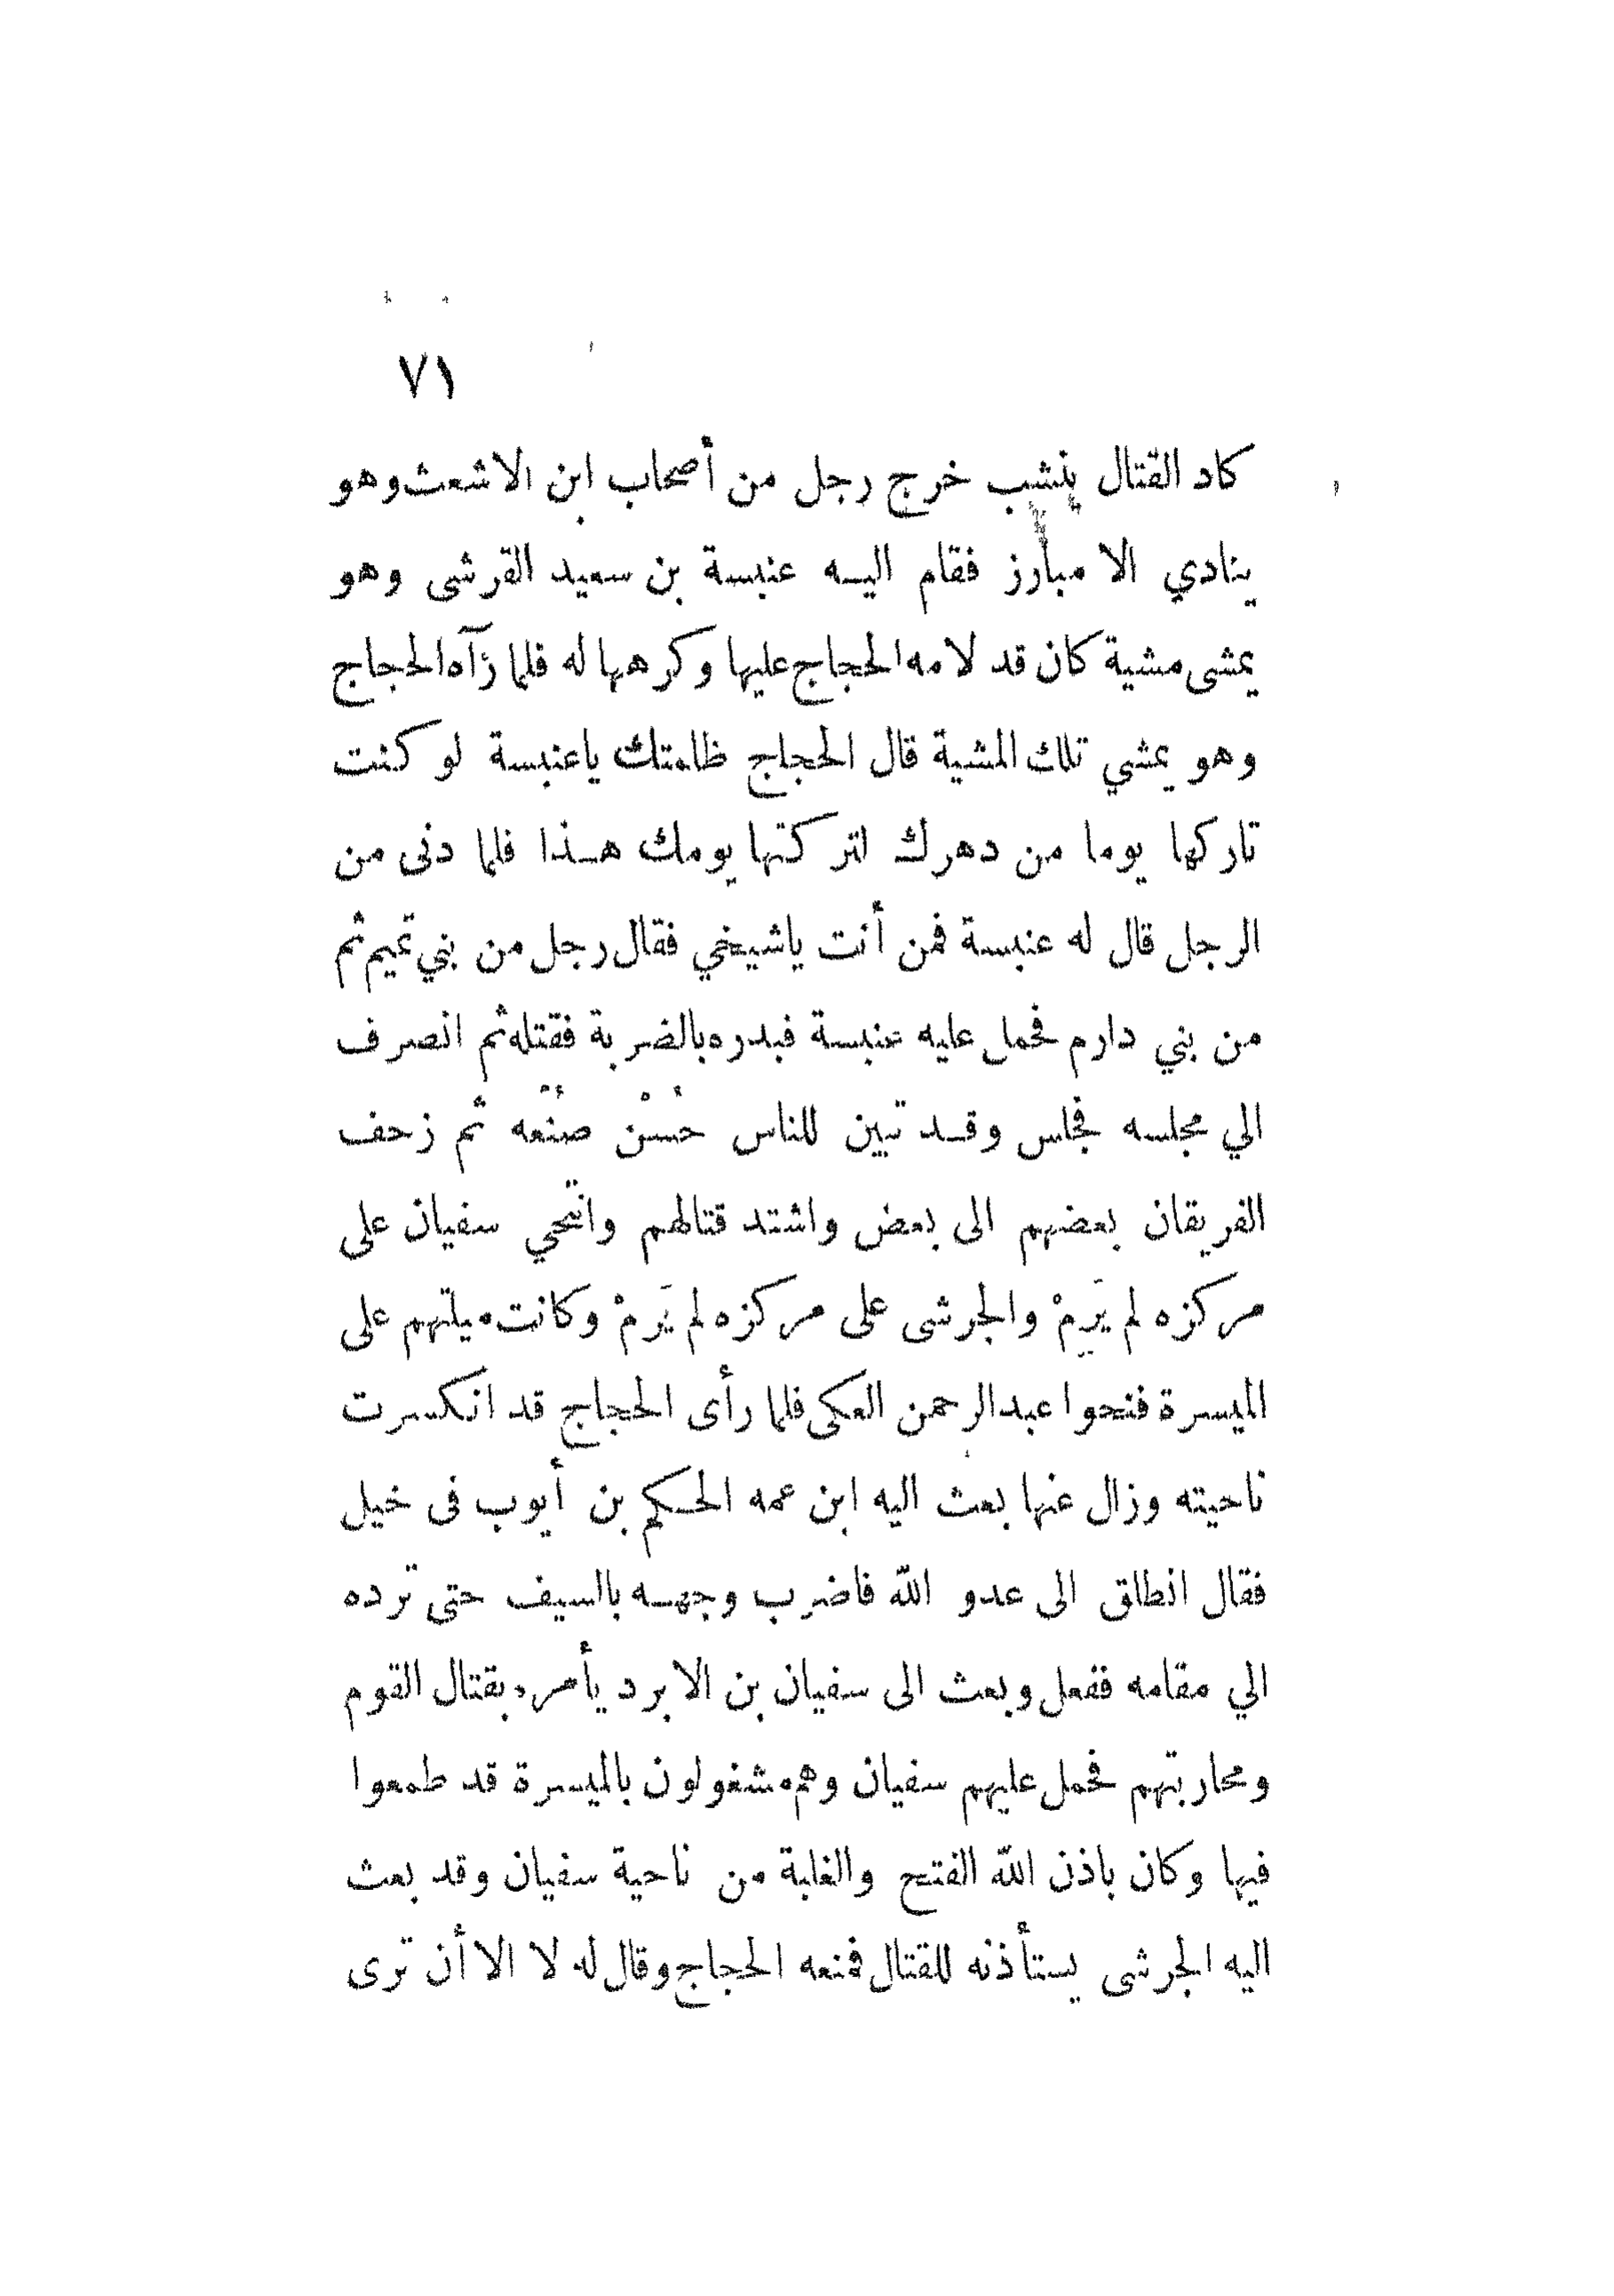 ٧١
كاد القتال ينشب خرج رجل من أصحاب ابن الاشعث وهو
ينادي الا مبارز فقام اليه عنبسة بن سعيد القرشى وهو
يمشى مشية كان قد لامه الحجاج عليها وكرهها له فلما رآه الحجاج
وهو يمشي تلك المشية قال الحجاج ظلمتك ياعنبسة لو كنت
تاركها يوما من دهرك لتركتها يومك هذا فلما دنى من
الرجل قال له عنبسة فمن أنت ياشيخي فقال رجل من بني تميم ثم
من بني دارم فحمل عليه عنبسة فبدره بالضربة فقتله ثم انصرف
الي مجلسه فجلس وقد تبين للناس حُسْن صُنْعه ثم زحف
الفريقان بعضهم الى بعض واشتد قتالهم وانتحي سفيان على
مركزه لم يَرِمْ والجرشى على مركزه لم يَرمْ وكانت ميلتهم على
الميسرة فنحوا عبدالرحمن العكى فلما رأى الحجاج قد انكسرت
ناحيته وزال عنها بعث اليه ابن عمه الحكم بن أيوب فى خيل
فقال انطلق الى عدو اللّه فاضرب وجهه بالسيف حتى ترده
الي مقامه ففعل وبعث الى سفيان بن الابرد يأمره بقتال القوم
ومحاربتهم فحمل عليهم سفيان وهم مشغولون بالميسرة قد طمعوا
فيها وكان باذن اللّه الفتح والغلبة من ناحية سفيان وقد بعث
اليه الجرشى يستأذنه للقتال فمنعه الحجاج وقال له لا الا أن ترى